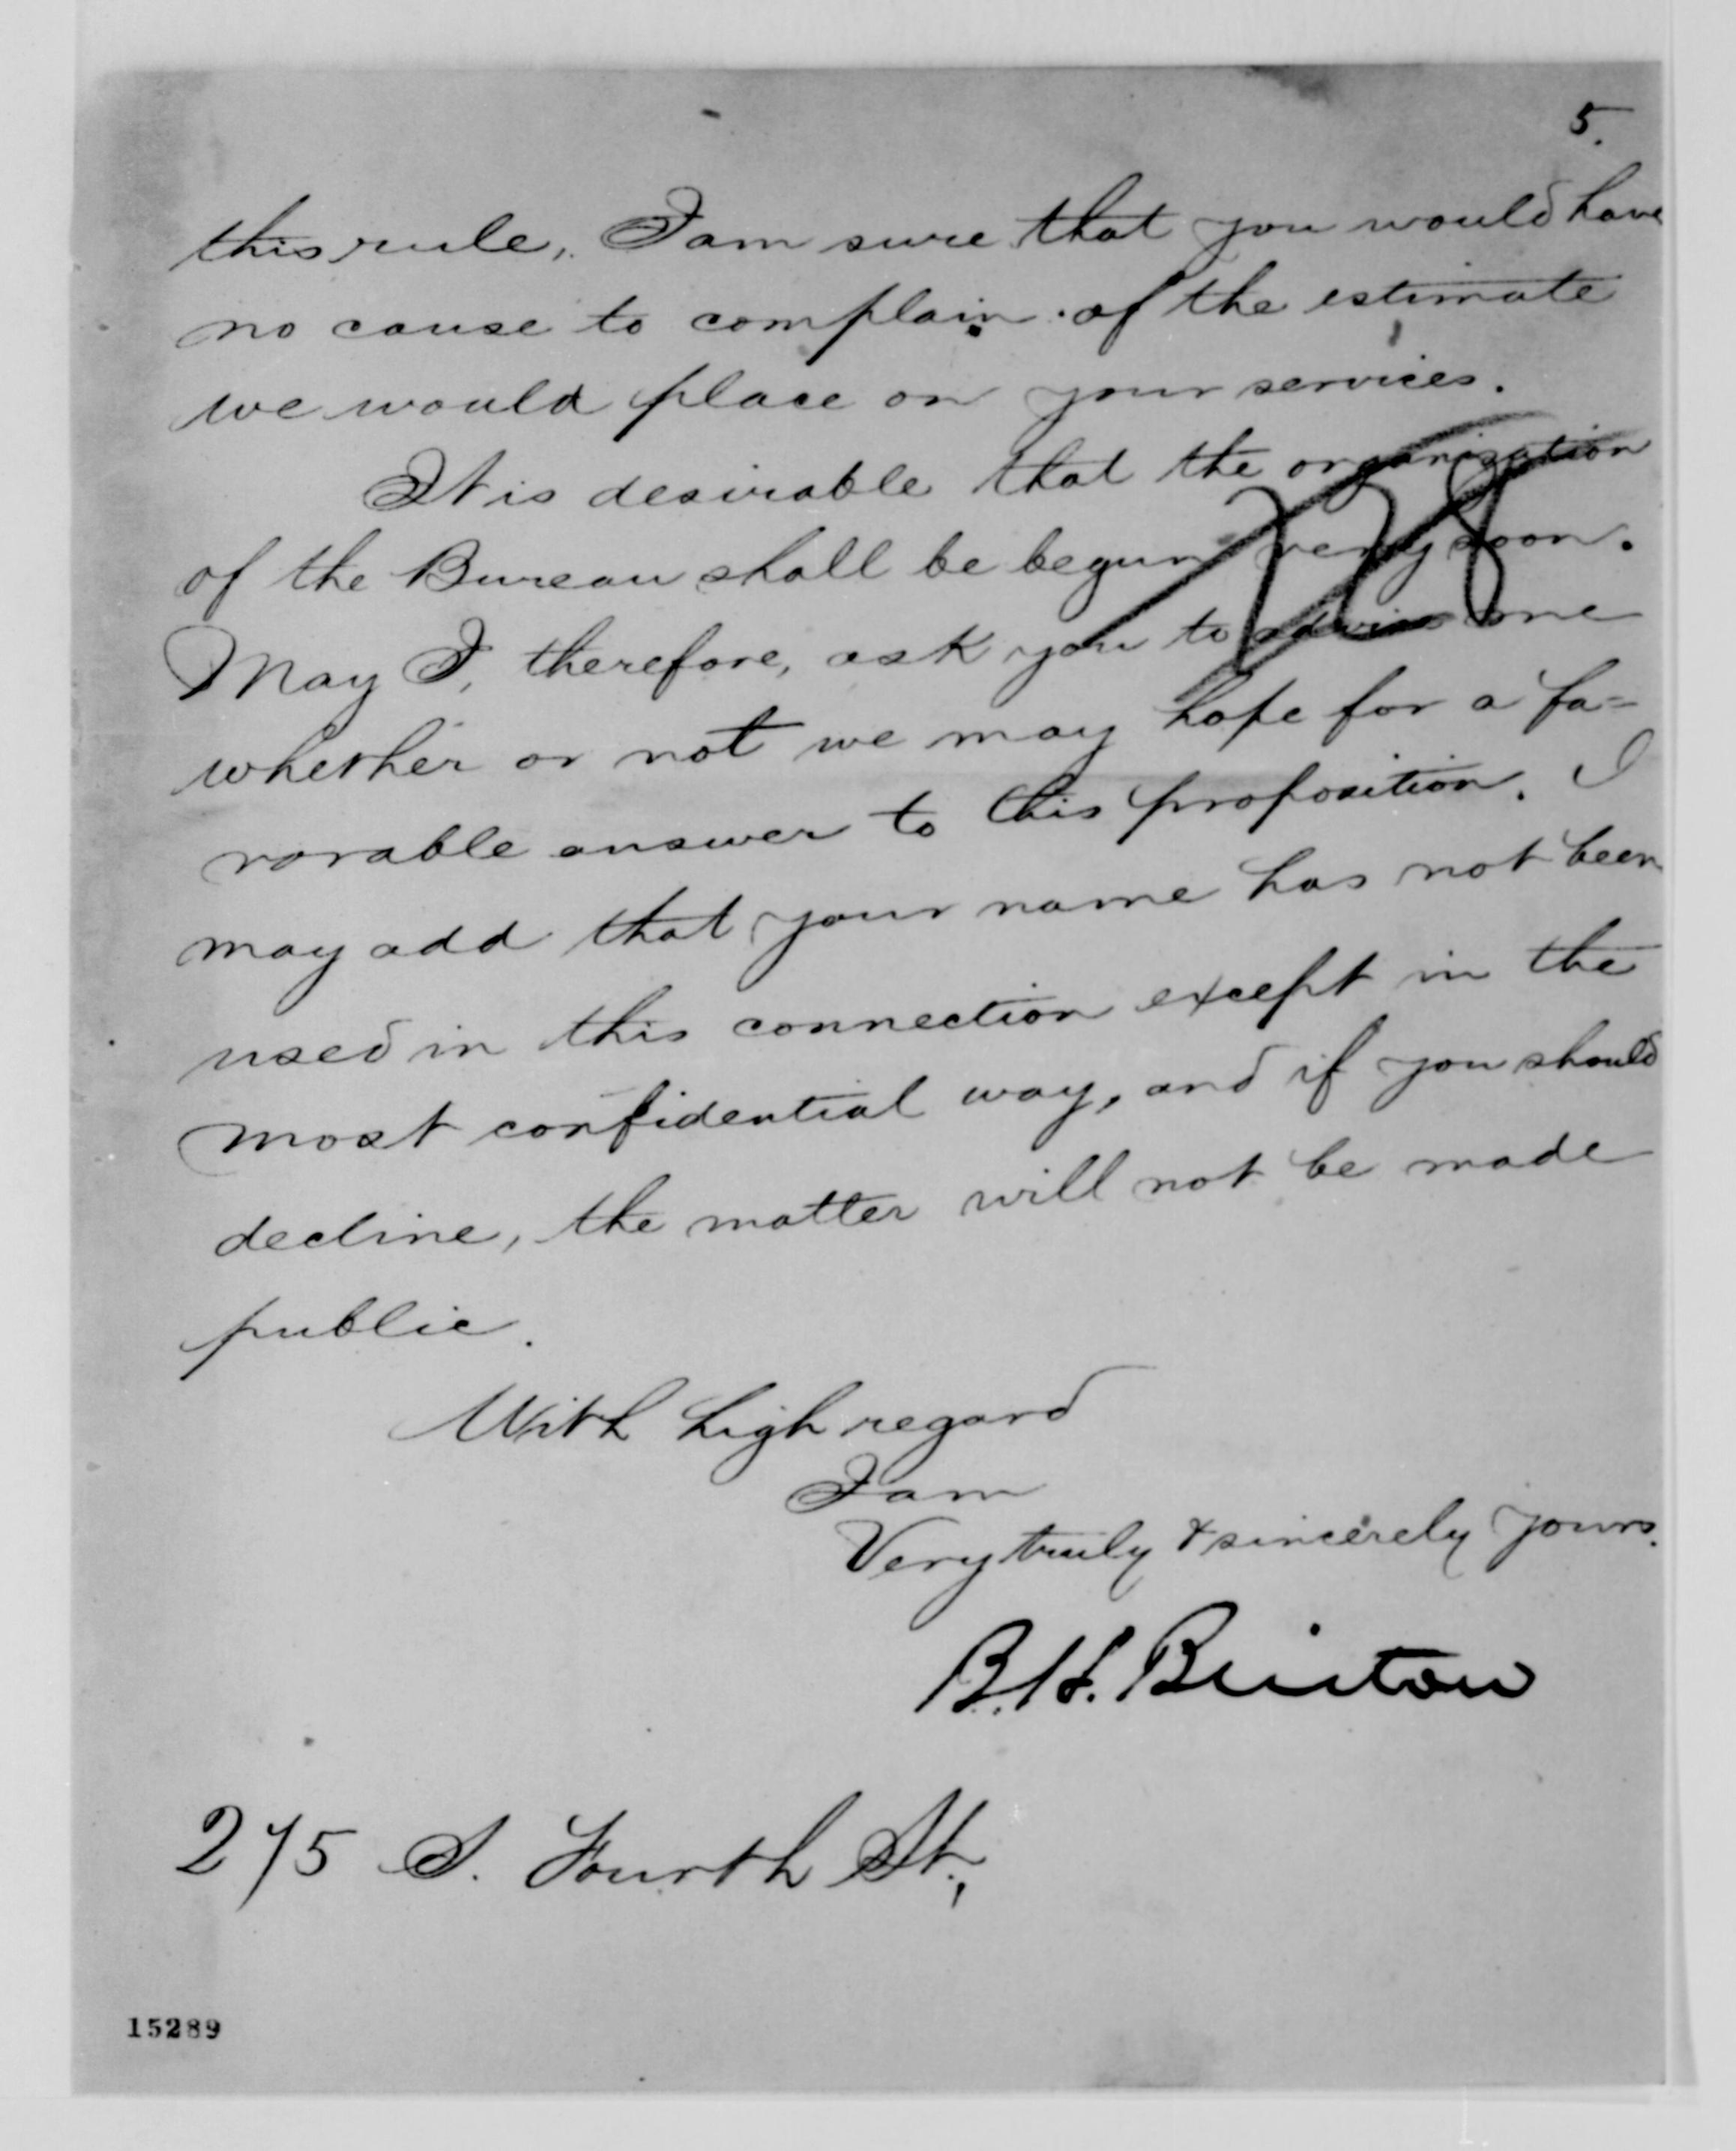 5.
this rule, I am sure that you would have
no cause to complain of the estimate
we would place on your services.
It is desirable that the organization
of the Bureau shall be begun very soon.
May I, therefore, ask you to advise me
whether or not we may hope for a fa=
vorable answer to this proposition. I
may add that your name has not been
used in this connection except in the
most confidential way, and if you should
decline, the matter will not be made
public.
With high regard
I am
Very truly & sincerely yours.
B. H.
275 S. Fourth St.,
15289